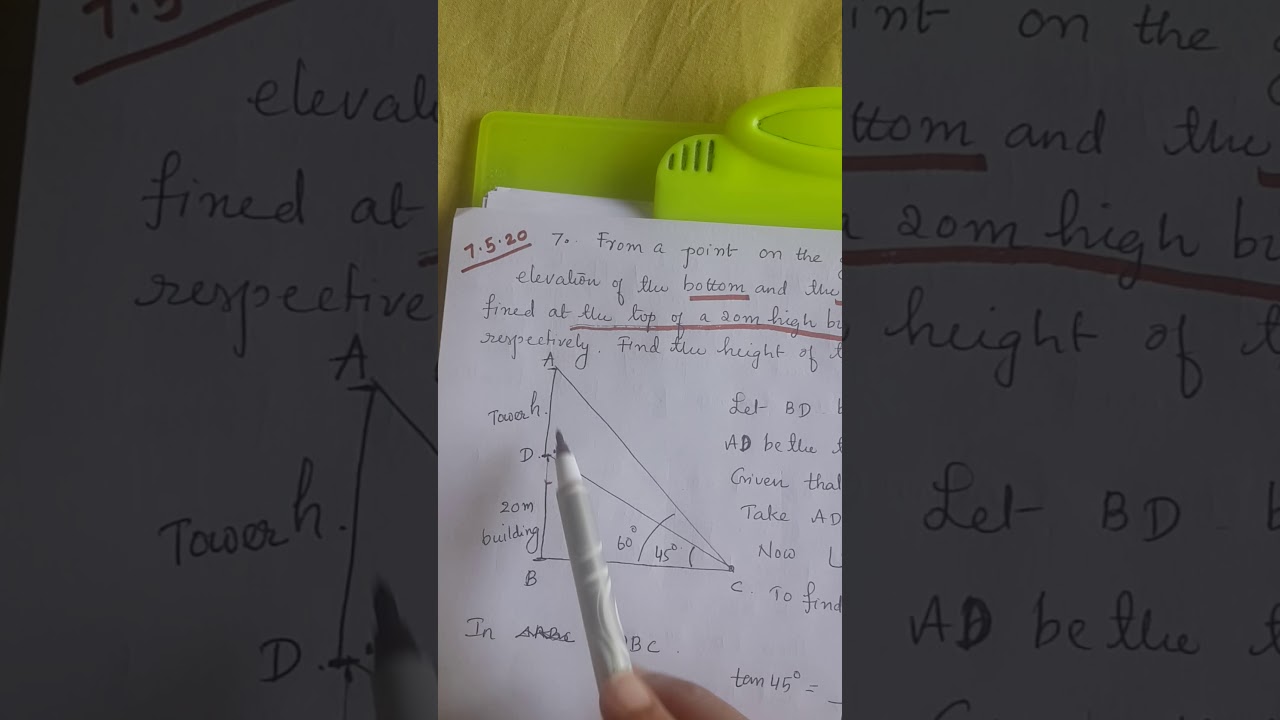 7.5.20 7. From a point on the
elevation of the bottom and the
fined at the top of a 20m high bu
respectively. Find the height of t
A
Tower h.
D.
20m
building
60° 45°
B
C.
Let BD b
AD be the t
Given that
Take AD
Now
To find
In BC.
tan 45° =